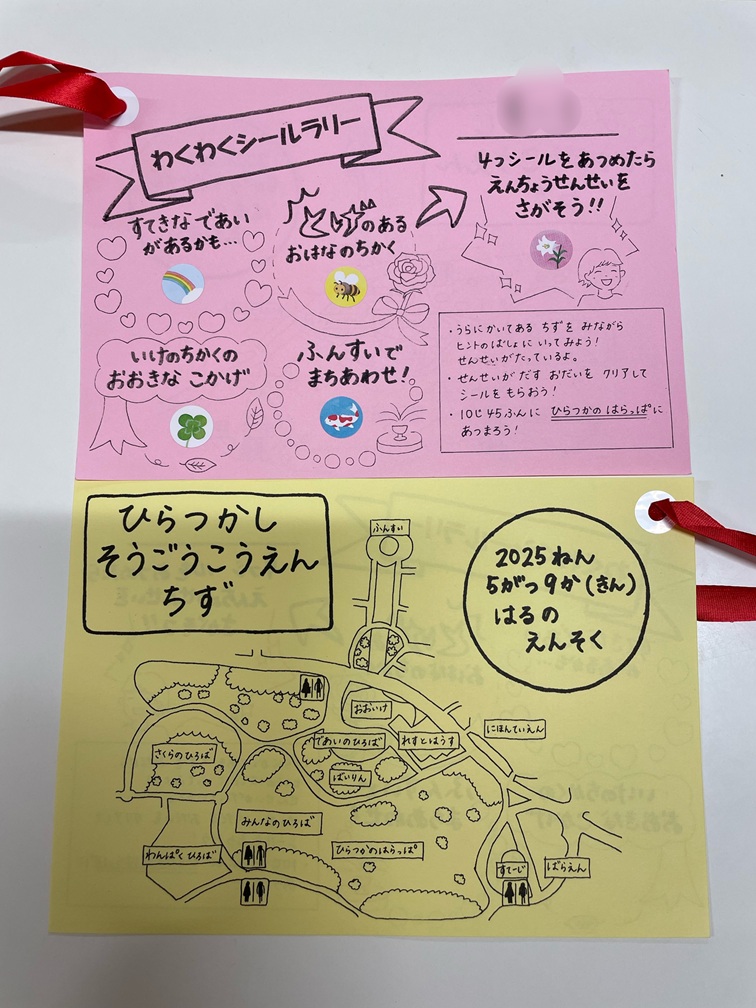 わくわくシールラリー
すてきなであい
があるかも…
とげのある
おはなのちかく
4つシールをあつめたら
えんちょうせんせいを
さがそう!!
いけのちかくの
おおきな こかげ
ふんすいで
まちあわせ!
・うらにかいてある ちずを みながら
ヒントのばしょに いってみよう!
せんせいがたっているよ。
・せんせいが だす おだいを クリアして
シールを もらおう!
・10じ45ふんに ひらつかの はらっぱに
あつまろう!
ひらつかし
そうごうこうえん
ちず
2025ねん
5がつ9か(きん)
はるの
えんそく
ふんすい
おおいけ
にほんていえん
であいのひろば
れすとはうす
さくらのひろば
ばいりん
みんなのひろば
わんぱくひろば
ひらつかのはらっぱ
すてーじ
ばらえん